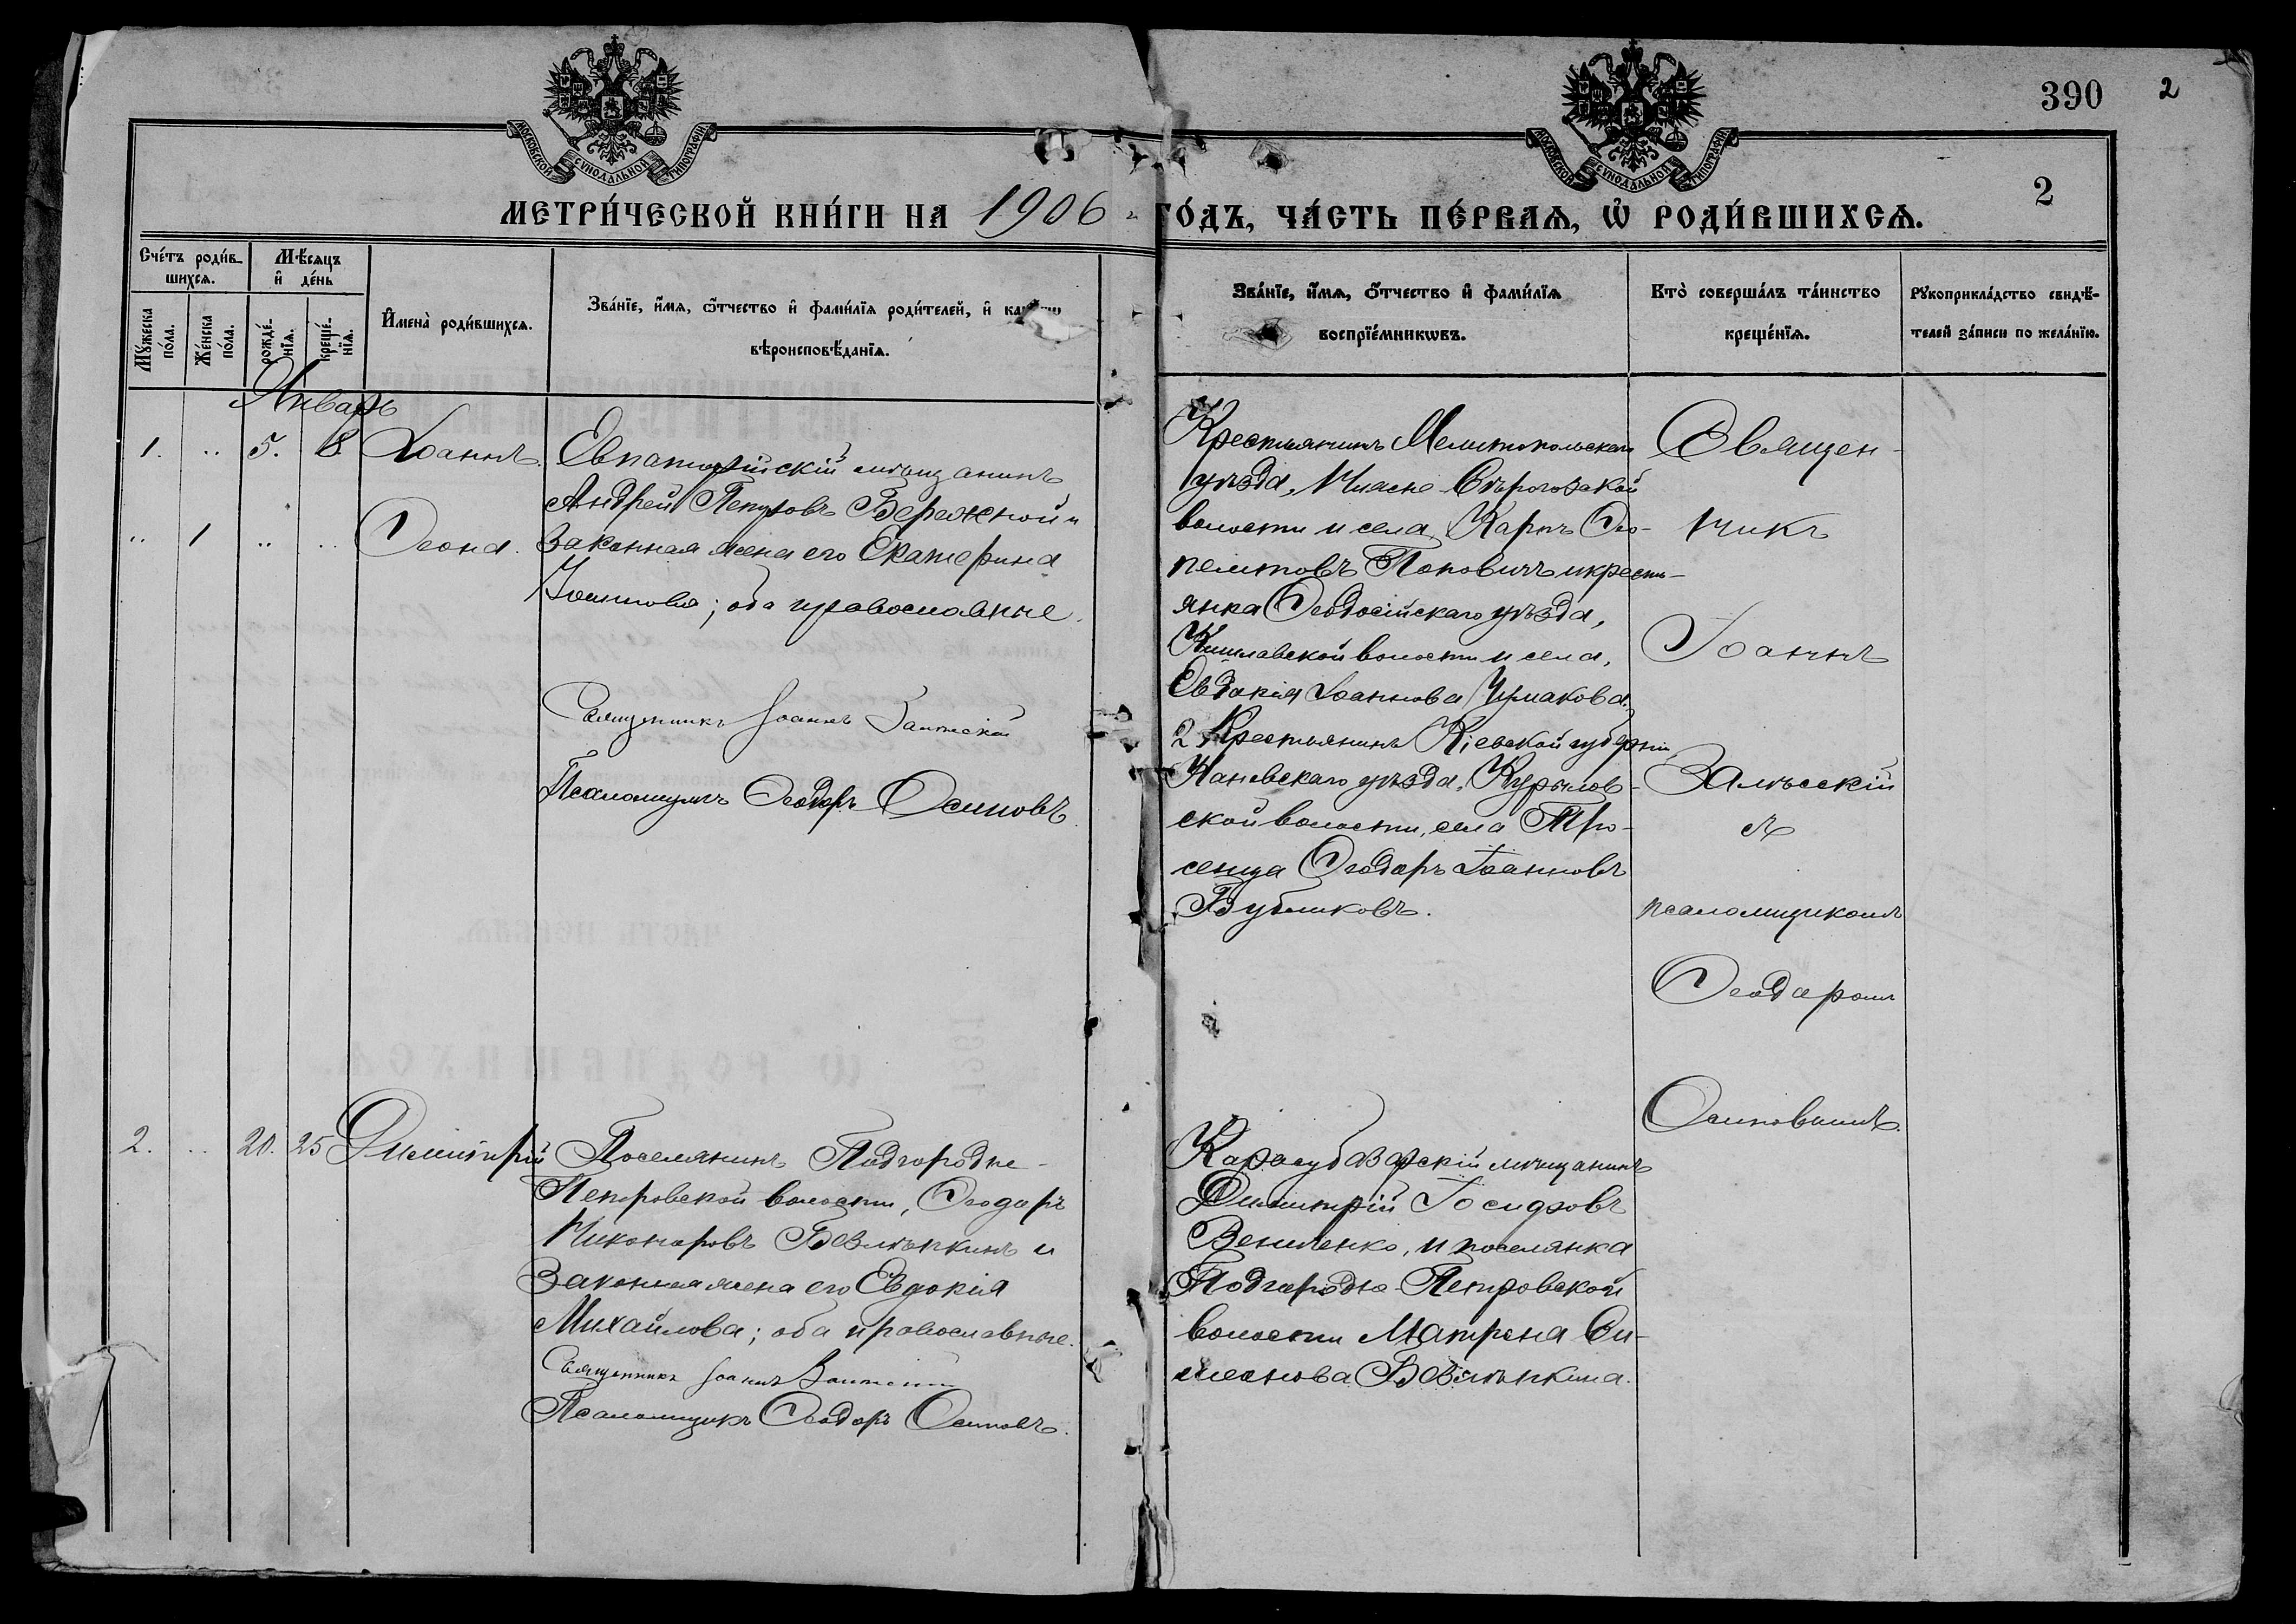 390 2
МОСКОВСКОЙ СѴНОДАЛЬНОЙ ТИПОГРАФІИ
МОСКОВСКОЙ СѴНОДАЛЬНОЙ ТИПОГРАФІИ
2
МЕТРИ́ЧЕСКОЙ КНИ́ГИ НА 1906 ГО́ДЪ, ЧА́СТЬ ПЕ́РВАѦ, Ѡ҆ РОДИ́ВШИХСѦ.
Сче́тъ роди́в-
шихсѧ.
Мѣ́сѧцъ
и҆ де́нь
Мꙋ́жеска по́ла.
Же́нска по́ла.
рожде́-нїѧ.
креще́-нїѧ.
И҆мена̀ роди́вшихсѧ.
Зва́нїе, и҆́мѧ, ѻ҆́тчество и҆ фами́лїѧ роди́телей, и҆
вѣроисповѣ́данїѧ.
Зва́нїе, и҆́мѧ, ѻ҆́тчество и҆ фами́лїѧ
воспрїе́мникѡвъ.
Кто̀ соверша́лъ та́инство
креще́нїѧ.
Рꙋкоприкла́дство свидѣ́-
телей за́писи по жела́нїю.
Январь
1. .. 5. 8. Іоаннъ.
.. 1 .. .. Ѳеона.
Евпаторійскій мѣщанинъ
Андрей Петровъ Бережной и
законная жена его Екатерина
Іоаннова; оба православные.
Священникъ Іоаннъ Залѣсскій
Псаломщикъ Ѳеодоръ Осиповъ.
Крестьянинъ Мелитопольскаго
уѣзда, Нижне-Сѣрогозской
волости и села Карпъ Ѳео-
пемптовъ Поповичъ и кресть-
янка Ѳеодосійскаго уѣзда,
Кишлавской волости и села,
Евдокія Іоаннова Чумакова.
2, Крестьянинъ Кіевской губерніи
Каневскаго уѣзда, Курилов-
ской волости, села Тро-
сенца Ѳеодоръ Іоанновъ
Бубликовъ.
Священ-
никъ
Іоаннъ
Залѣсскій
съ
псаломщикомъ
Ѳеодоромъ
Осиповымъ.
2. .. 20. 25 Димитрій
Поселянинъ Подгородне-
Петровской волости, Ѳеодоръ
Никаноровъ Безмѣнкинъ и
законная жена его Евдокія
Михайлова; оба православные.
Священникъ Іоаннъ Залѣсскій
Псаломщикъ Ѳеодоръ Осиповъ.
Карасубазарскій мѣщанинъ
Димитрій Іосифовъ
и поселянка
Подгородне-Петровской
волости Матрена Си-
меонова Безмѣнкина.